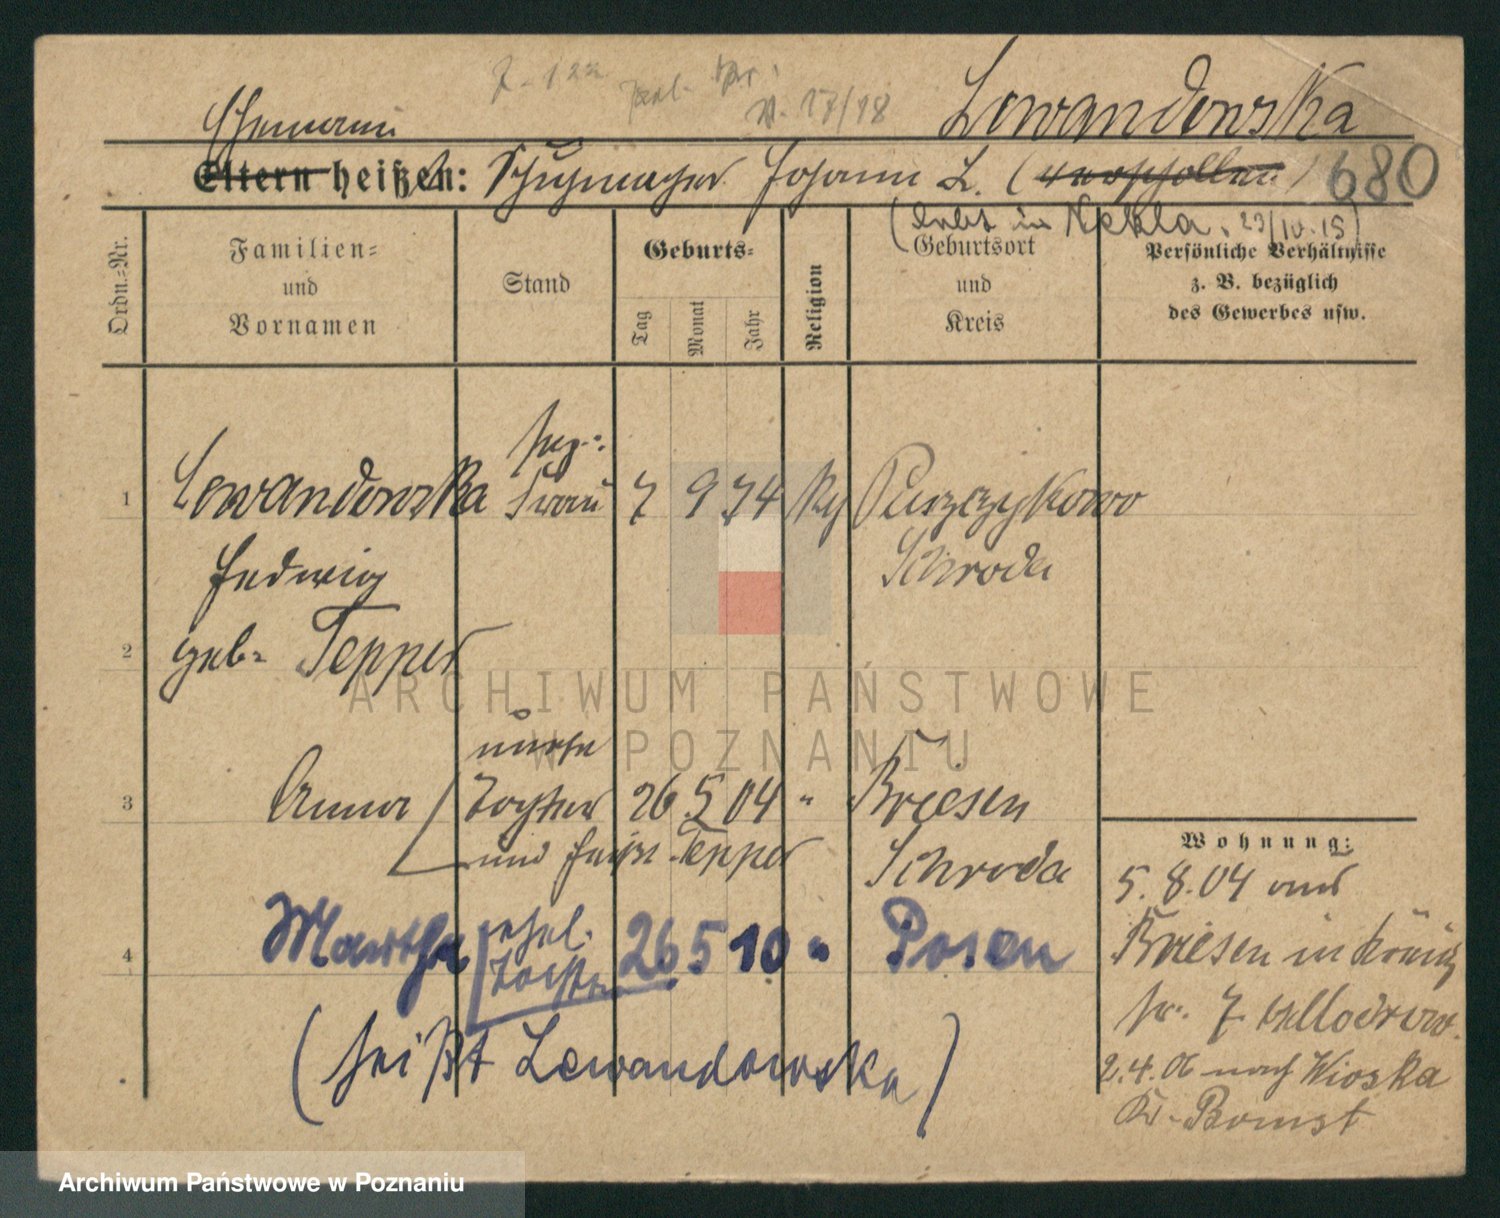 Lewandowska
Ehemann
Eltern heißen: Schuhmacher Johann L. (verschollen) 680
(lebt in Nekla. 23/10.15)
Ordn.-Nr.
Familien-
und
Vornamen
Stand
Geburts-
Tag
Monat
Jahr
Religion
Geburtsort
und
Kreis
Persönliche Verhältnisse
z. B. bezüglich
des Gewerbes usw.
1 Lewandowska Frau 7 9 74 Puszczykowo
Hedwig Schroda
2 geb. Tepper
3 Anna Tochter 26 5 04 " Briesen
und heißt Tepper Schroda
4 Martha ehel. Tochter 26 5 10 " Posen
(heißt Lewandowska)
Wohnung:
5.8.04 aus
Briesen in
2.4.06 nach Wioska
Kr. Bomst
17/18
ARCHIWUM PAŃSTWOWE
W POZNANIU
Archiwum Państwowe w Poznaniu